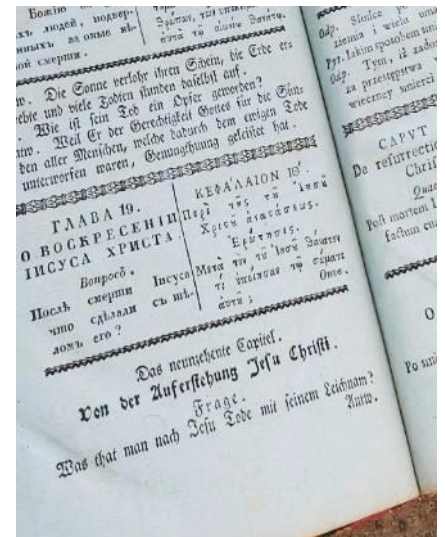 Божію
людей, подвер-
за оные вѣ-
ой смерти.
αὐτὰ τῶ
Die Sonne verlohr ihren Schein, die Erde er-
bebte und viele Todten stunden daselbst auf.
Wie ist sein Tod ein Opfer geworden?
Antw. Weil Er der Gerechtigkeit Gottes für die Sün-
den aller Menschen, welche dadurch dem ewigen Tode
unterworfen waren, Genugthuung geleistet hat.
ГЛАВА 19.
О ВОСКРЕСЕНІИ
ІИСУСА ХРИСТА.
Вопросъ.
Послѣ смерти Іисуса
что сдѣлали съ тѣ-
ломъ его?
ΚΕΦΑΛΑΙΟΝ ΙΘ'.
Περὶ τῆς τῦ Ἰησῦ
Χριςῦ ἀναςάσεως.
Ἐρώτησις.
Μετὰ τὸν τῦ Ἰησῦ Θάνατον
τί ἐποίησαν τῷ σώματι
αὐτῦ;
Отве.
Das neunzehente Capitel.
Von der Auferstehung Jesu Christi.
Frage.
Was that man nach Jesu Tode mit seinem Leichnam?
Antw.
Odp. Słońce
ziemia i wielu
Pyt. Iakim sposobem
Odp. Tym, iż
za przestępstwa
wieczney śmierci
CAPVT
De resurrectio
Chri
Post mortem I
factum
O
Po